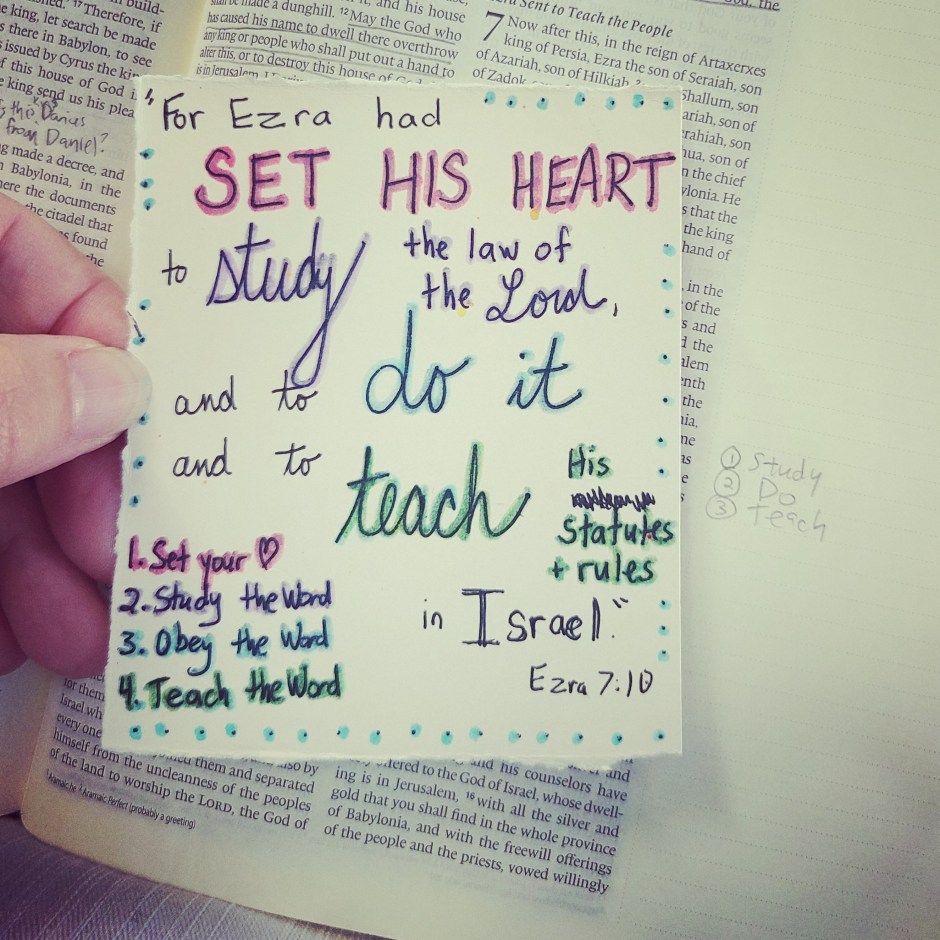 build-
shed.' 17Therefore, if
e king, let search be made
s there in Babylon, to see
issued by Cyrus the kin
f this house of God i
e king send us his plea
from Daniel?
g made a decree, and
Babylonia, in the
here the documents
the citadel that
s found
the
be made a dunghill. 12May the God who
has caused his name to dwell there overthrow
any king or people who shall put out a hand to
alter this, or to destroy this house of God
is in Jerusalem.
, and his house
Sent to Teach the People
7 Now after this, in the reign of Artaxerxes
king of Persia, Ezra the son of Seraiah, son
of Azariah, son of Hilkiah,
of Zadok,
Shallum, son
ariah, son of
rahiah, son
hua, son of
n the chief
ylonia. He
s that the
the king
hand of
, in the
of the
s and
d the
alem
enth
the
nia,
ne
as
e
"For Ezra had
SET HIS HEART
to study the law of
the Lord,
and to do it
and to teach His
Statutes
+ rules
in Israel."
Ezra 7:10
1. Set your ♡
2. Study the Word
3. Obey the Word
4. Teach the Word
① Study
② Do
③ Teach
for them
Israel wh
every one
himself from the uncleanness of the peoples
of the land to worship the LORD, the God of
also by
them and separated
Aramaic Perfect (probably a greeting)
and his counselors have
and
ffered to the God of Israel, whose dwell-
ing is in Jerusalem, 16with all the silver and
gold that you shall find in the whole province
of Babylonia, and with the freewill offerings
of the people and the priests, vowed willingly